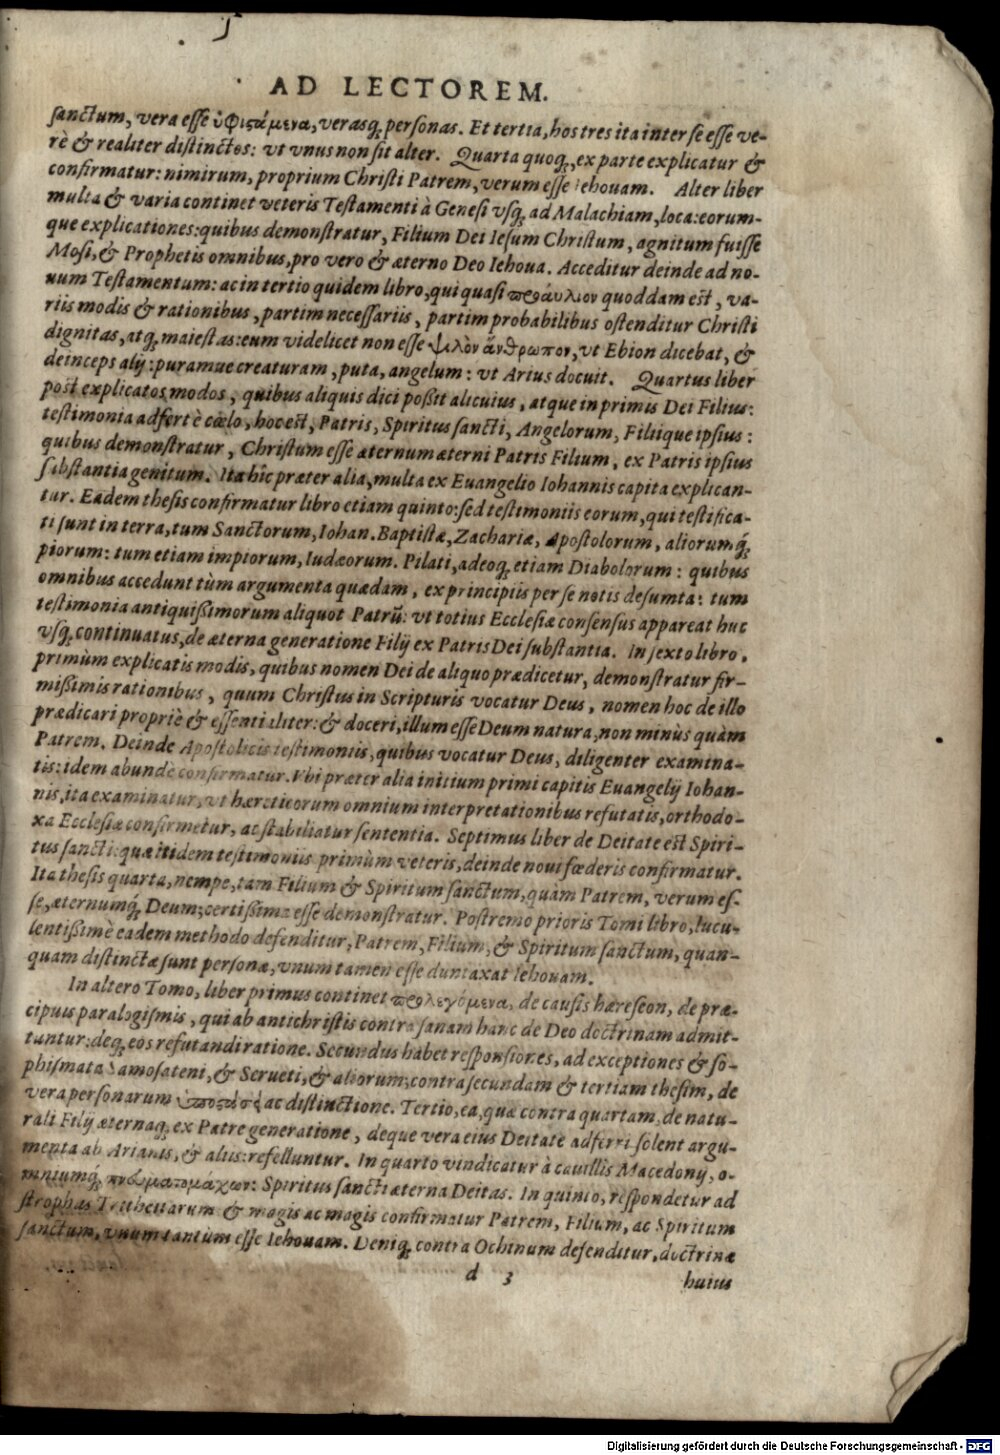 AD LECTOREM.
sanctum, vera esse ὑφιστάμενα, verasq́ personas. Et tertia, hos tres ita inter se esse ve-
rè & realiter distinctos: vt vnus non sit alter. Quarta quoq́, ex parte explicatur &
confirmatur: nimirum, proprium Christi Patrem, verum esse Iehouam. Alter liber
multa & varia continet veteris Testamenti à Genesi vsq́ ad Malachiam, loca: eorum-
que explicationes: quibus demonstratur, Filium Dei Iesum Christum, agnitum fuisse
Mosi, & Prophetis omnibus, pro vero & æterno Deo Iehoua. Acceditur deinde ad no-
uum Testamentum: ac in tertio quidem libro, qui quasi προάυλιον quoddam est, va-
riis modis & rationibus, partim necessariis, partim probabilibus ostenditur Christi
dignitas, atq́ maiestas: eum videlicet non esse ψιλὸν ἄνθρωπον, vt Ebion dicebat, &
deinceps alij: puramue creaturam, puta, angelum: vt Arius docuit. Quartus liber
post explicatos modos, quibus aliquis dici poßit alicuius, atque in primis Dei Filius:
testimonia adfert è cœlo, hoc est, Patris, Spiritus sancti, Angelorum, Filiique ipsius:
quibus demonstratur, Christum esse æternum æterni Patris Filium, ex Patris ipsius
substantia genitum. Ita hîc præter alia, multa ex Euangelio Iohannis capita explican-
tur. Eadem thesis confirmatur libro etiam quinto: sed testimoniis eorum, qui testifica-
ti sunt in terra, tum Sanctorum, Iohan. Baptistæ, Zachariæ, Apostolorum, aliorumq́
piorum: tum etiam impiorum, Iudæorum. Pilati, adeoq́ etiam Diabolorum: quibus
omnibus accedunt tùm argumenta quædam, ex principiis per se notis desumta: tum
testimonia antiquißimorum aliquot Patrũ: vt totius Ecclesiæ consensus appareat huc
vsq́ continuatus, de æterna generatione Filij ex Patris Dei substantia. In sexto libro,
primùm explicatis modis, quibus nomen Dei de aliquo prædicetur, demonstratur fir-
mißimis rationibus, quum Christus in Scripturis vocatur Deus, nomen hoc de illo
prædicari propriè & essentialiter: & doceri, illum esse Deum natura, non minùs quàm
Patrem. Deinde Apostolicis testimoniis, quibus vocatur Deus, diligenter examina-
tis: idem abundè confirmatur. Vbi præter alia initium primi capitis Euangelij Iohan-
nis, ita examinatur, vt hæreticorum omnium interpretationibus refutatis, orthodo-
xa Ecclesiæ confirmetur, ac stabiliatur sententia. Septimus liber de Deitate est Spiri-
tus sancti: quæ itidem testimoniis primùm veteris, deinde noui fœderis confirmatur.
Ita thesis quarta, nempe, tam Filium & Spiritum sanctum, quàm Patrem, verum es-
se, æternumq́ Deum; certißima esse demonstratur. Postremo prioris Tomi libro, lucu-
lentißimè eadem methodo defenditur, Patrem, Filium, & Spiritum sanctum, quan-
quam distinctæ sunt personæ, vnum tamen esse duntaxat Iehouam.
In altero Tomo, liber primus continet προλεγόμενα, de causis hæreseon, de præ-
cipuis paralogismis, qui ab antichristis contra sanam hanc de Deo doctrinam admit-
tuntur: deq́ eos refutandi ratione. Secundus habet responsiones, ad exceptiones & so-
phismata Samosateni, & Serueti, & aliorum; contra secundam & tertiam thesim, de
vera personarum ac distinctione. Tertio, ea, quæ contra quartam, de natu-
rali Filij æternaq́ ex Patre generatione, deque vera eius Deitate adferri solent argu-
menta ab Arianis, & aliis: refelluntur. In quarto vindicatur à cauillis Macedonij, o-
mniumq́ πνευματομάχων: Spiritus sancti æterna Deitas. In quinto, respondetur ad
strophas Tritheitarum & magis ac magis confirmatur Patrem, Filium, ac Spiritum
sanctum, vnum tantùm esse Iehouam. Deniq́ contra Ochinum defenditur, doctrinæ
d 3 huius
Digitalisierung gefördert durch die Deutsche Forschungsgemeinschaft - DFG